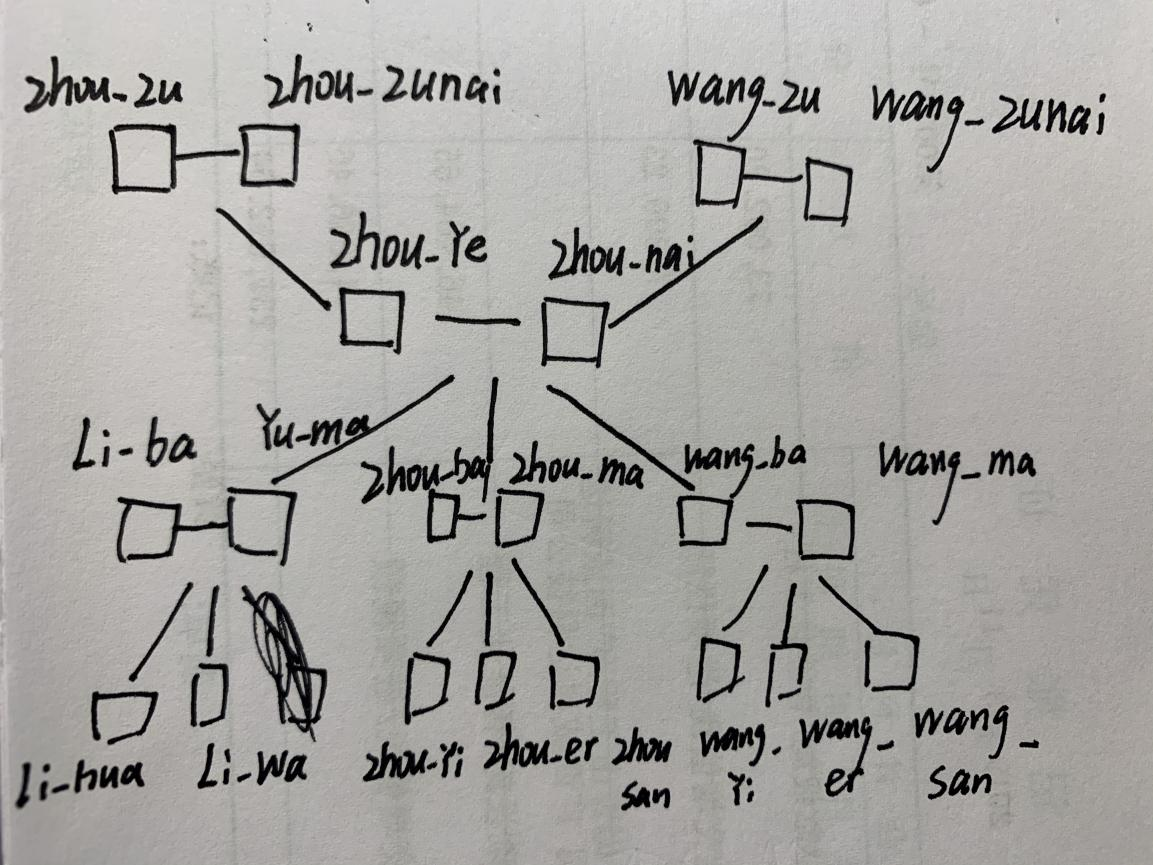 zhou_zu zhou_zunai wang_zu wang_zunai
zhou_Ye zhou_nai
Li-ba Yu-ma zhou_ba zhou_ma wang_ba wang_ma
Li-hua Li-wa zhou-Yi zhou_er zhou san wang- Yi wang_ er wang_ san